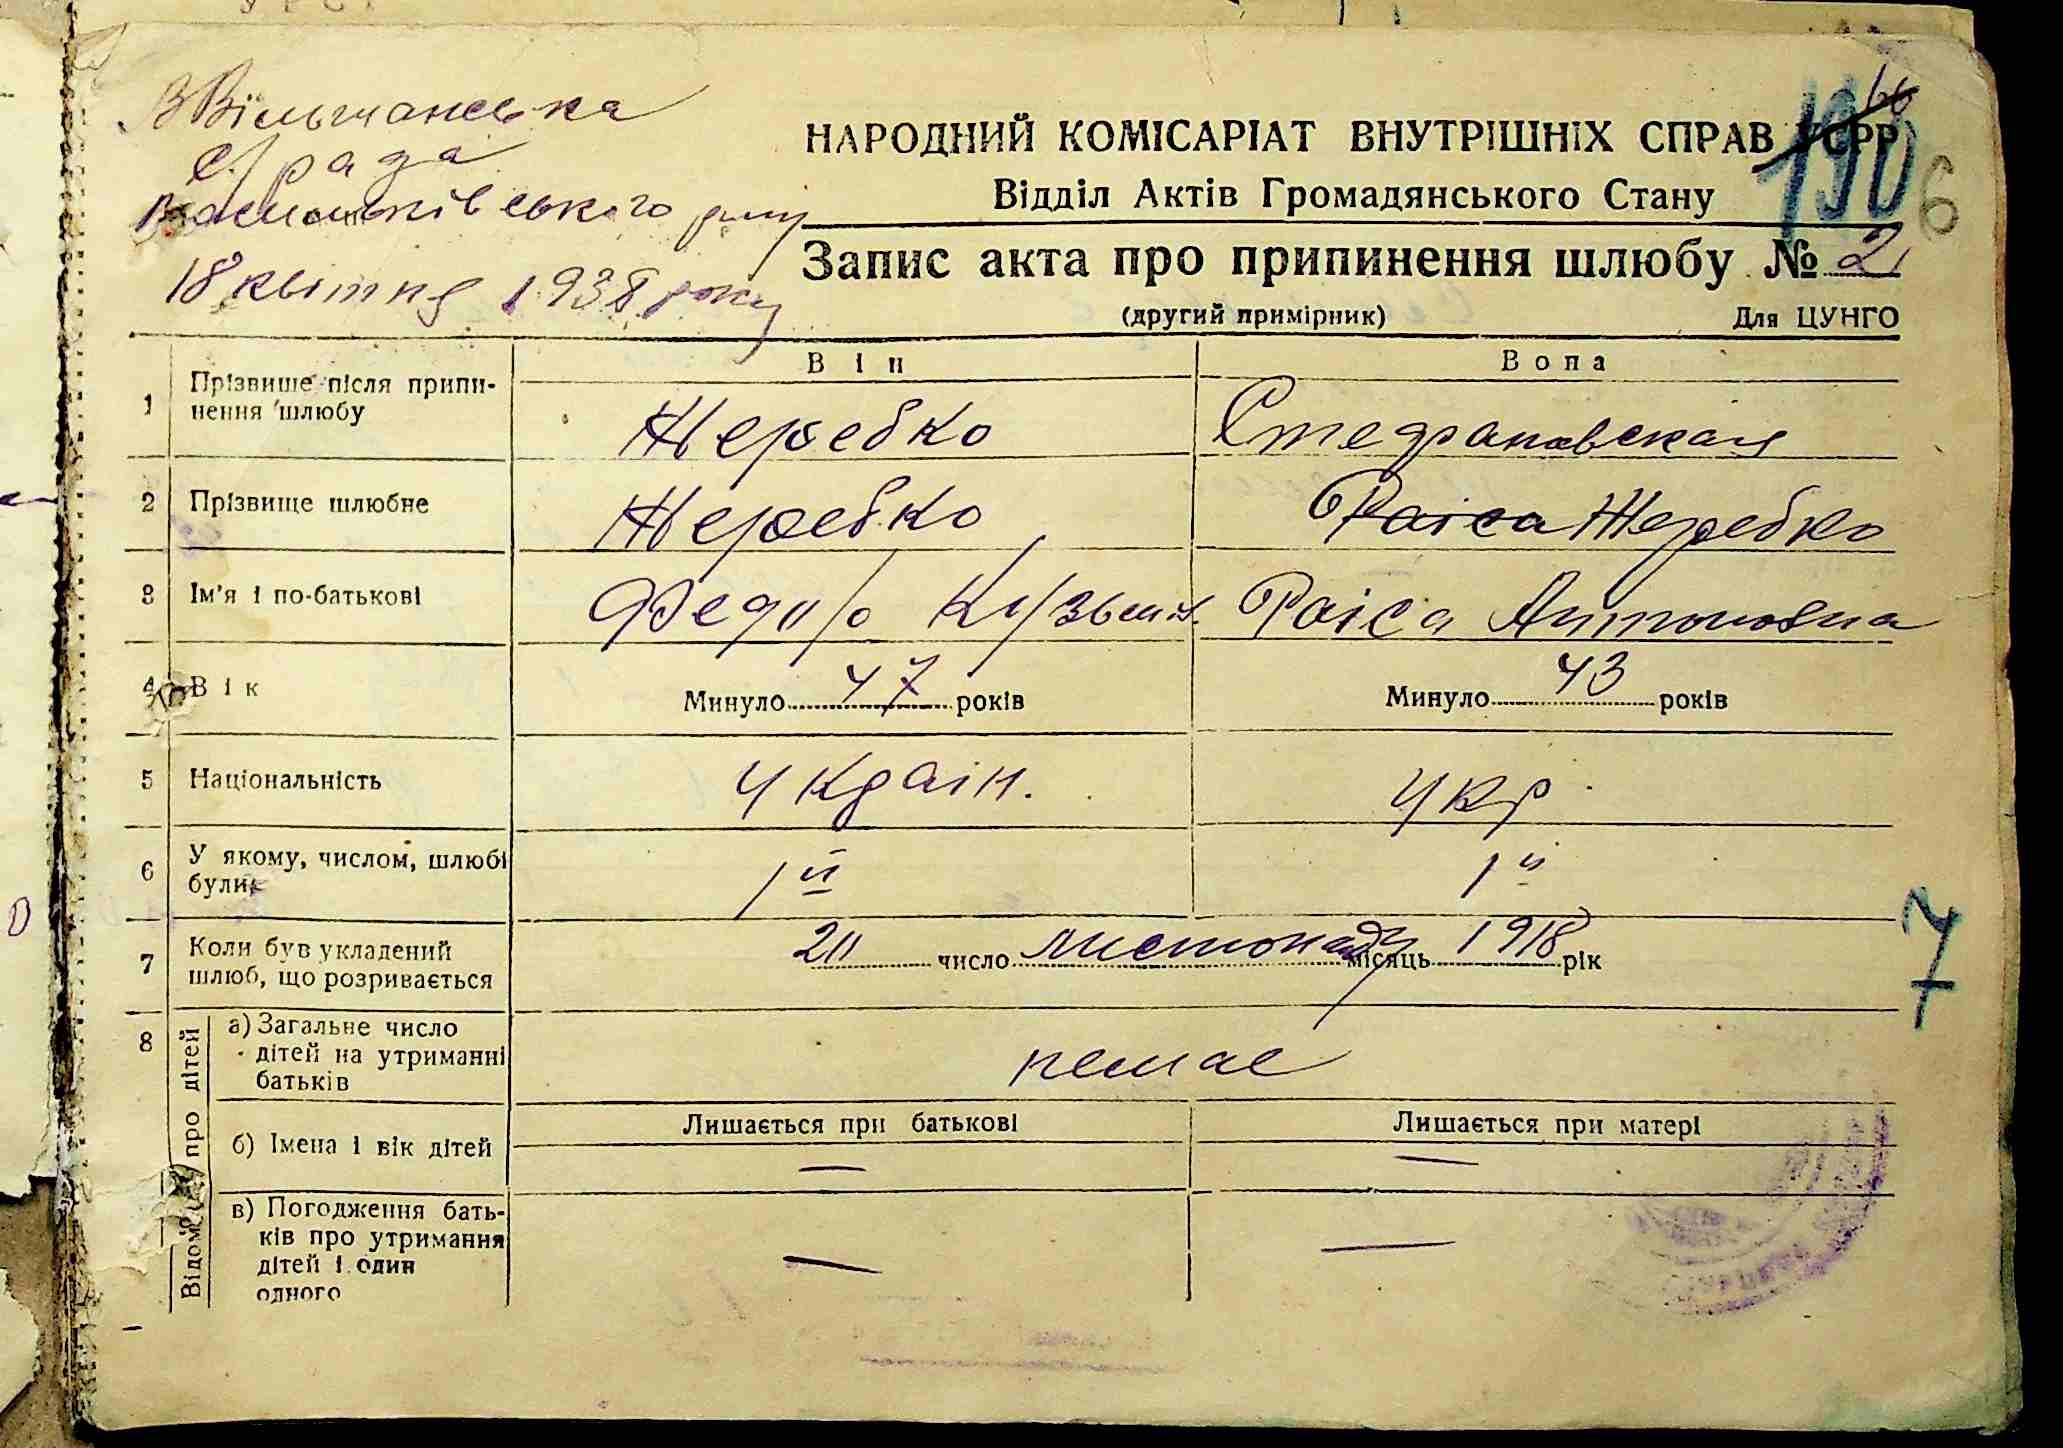 ВВільшанська
с/рада
Васильківського р-ну
18 квітня 1938 року
66
190
6
НАРОДНИЙ КОМІСАРІАТ ВНУТРІШНІХ СПРАВ УСРР
Відділ Актів Громадянського Стану
Запис акта про припинення шлюбу № 2
(другий примірник) Для ЦУНГО
Він Вона
1 Прізвище після припи-
нення шлюбу Жеребко Стефановская
2 Прізвище шлюбне Жеребко Раіса Жеребко
3 Ім'я і по-батькові Федір Кузьмів. Раіса Антоновна
4 Вік Минуло 47 років Минуло 43 років
5 Національність Україн. Укр.
6 У якому, числом, шлюбі
були 1й 1й
7 Коли був укладений
шлюб, що розривається число листопаду місяць 1918 рік
7
8 Відомості про дітей
а) Загальне число
дітей на утриманні
батьків немає
Лишається при батькові Лишається при матері
б) Імена і вік дітей — —
в) Погодження бать-
ків про утримання
дітей і один
одного — —